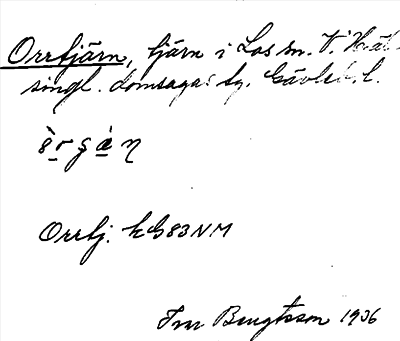 Orrtjärn, tjärn i Los sn. V. Häl-
singl. domsaga: tg. Gävleb. l.
Orrtj. kG83NM
Ivar Bengtsson 1936